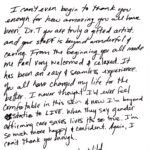 I can't even begin to thank you
enough for how amazing you all have
been. Dr. T you are truly a gifted artist.
and your staff is beyond wonderful &
caring. From the beginning you all made
me feel very welcomed & relaxed. It
has been an easy & seamless experience.
You all have changed my life for the
better. I never thought I'd ever feel
comfortable in this skin & now I'm beyond
ecstatic to LIVE. When they say gender
affirming care saves lives it's so true. I'm
so much more happy & confident. Again, I
can't thank you enough.